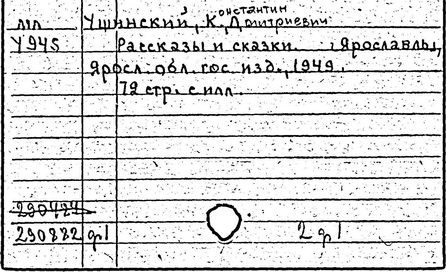 мл Ушинский, Константин Дмитриевич
У945 Рассказы и сказки. Ярославль,
Яросл. обл. гос. изд., 1949.
72 стр. с илл.
290424
290882 ф1 2 ф1